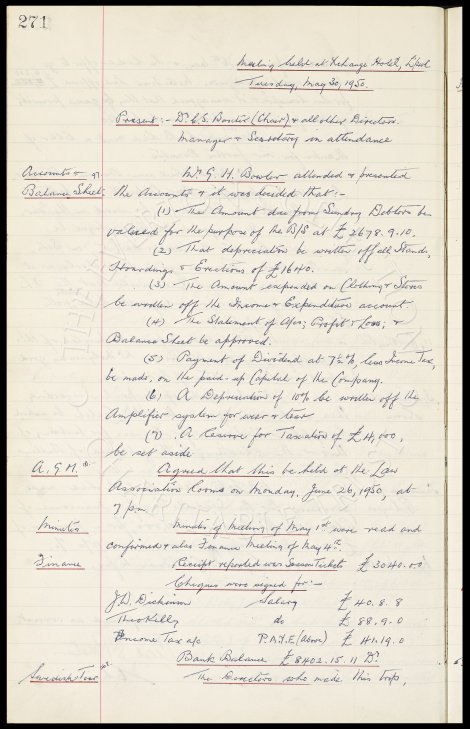 271
Meeting held at Exchange Hotel, L'pool
Tuesday, May 30, 1950.
Present:- Dr. C. S. Baxter (Chair) & all other Directors.
Manager & Secretary in attendance
Accounts & Mr. G. H. Bowler attended & presented
Balance Sheet the Accounts & it was decided that:-
(1) The Amount due from Sundry Debtors be
valued for the purpose of the B/S at £2678.9.10.
(2) That depreciation be written off all Stands,
Hoardings & Erections of £1640.
(3) The Amount expended on Clothing & Stores
be written off the Income & Expenditure account
(4) The Statement of Affs; Profit & Loss; &
Balance Sheet be approved.
(5) Payment of Dividend at 7½%, less Income Tax,
be made, on the paid-up Capital of the Company.
(6) A Depreciation of 10% be written off the
Amplifier system for wear & tear
(7) A Reserve for Taxation of £4,000,
be set aside
A.G.M. Agreed that this be held at the Law
Association Rooms on Monday, June 26, 1950, at
7 pm.
Minutes Minutes of Meeting of May 1st were read and
confirmed & also Finance Meeting of May 4th.
Finance Receipt reported was Season Tickets £3040.00
Cheques were signed for:-
J. D. Dickinson Salary £40.8.8
Theo Kelly do £88.9.0
Income Tax a/c P.A.Y.E (above) £41.19.0
Bank Balance £8402.15.11 Dr.
Swedish Tour The Directors who made this trip,